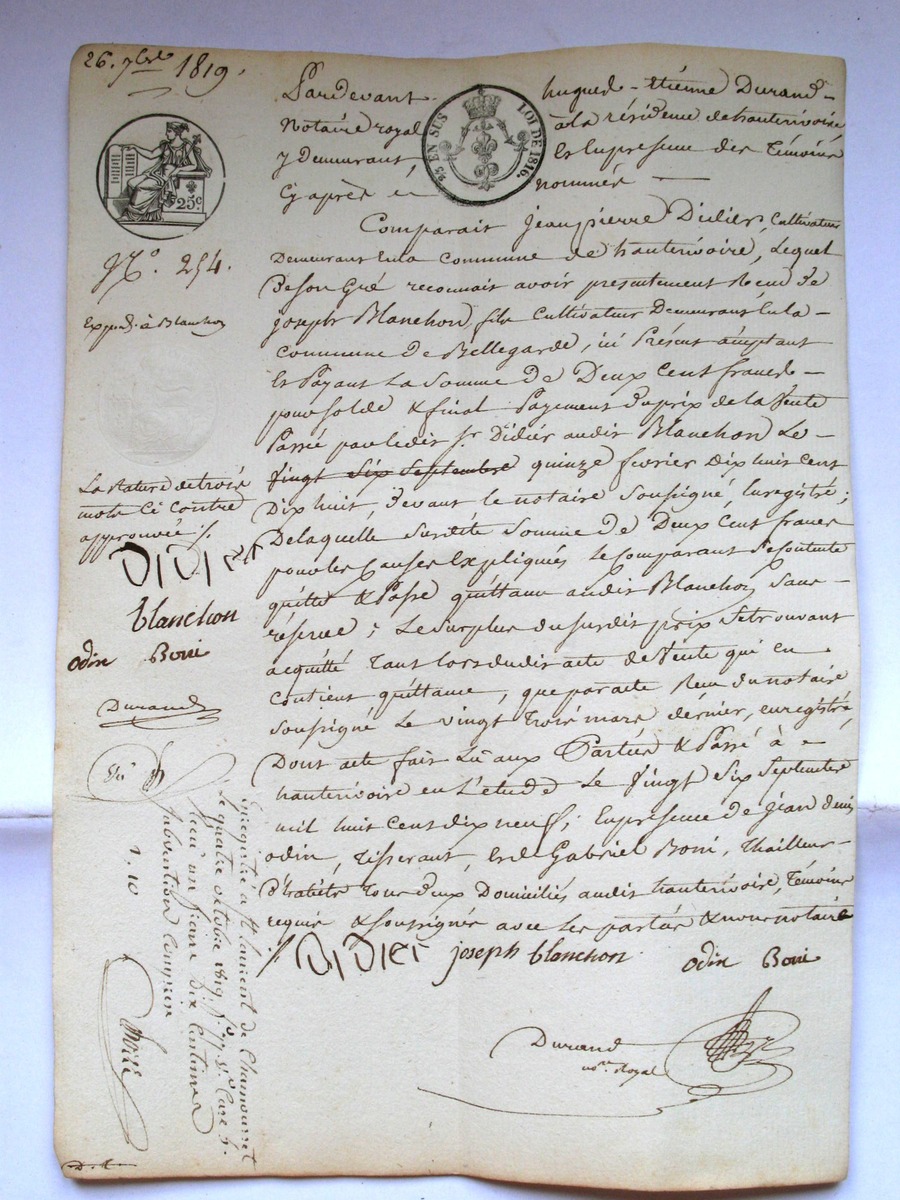 26. 7bre 1819.
Pardevant hugues-étienne Durand-
Notaire royal à la résidence de hauterivoire,
y Demeurant Et En presence des Témoins
Cy après nommés —
25 EN SUS LOI DE 1816.
25c
No. 254.
Comparait Jean pierre Didier, Cultivateur
Demeurant En la Commune de hauterivoire, Lequel
De son Gré reconnait avoir presentement Recu De
Expéd. à Blanchon
joseph Blanchon, fils Cultivateur Demeurant En la
Commune De Bellegarde, ici Présent acceptant
Et Payant La Somme De Deux Cent francs -
pour solde & final Payement du prix de la Vente
Passé par le dit Sr. Didier audit Blanchon Le -
Vingt Six Septembre quinze fevrier Dix huit Cent
Dix huit, Devant le notaire Soussigné, Enregistré;
La Rature de trois
mots Ci Contre
approuvée /.
De laquelle Susdite Somme De Deux Cent francs
pour les Causes Expliquées Le Comparant Se Contente
quitte & Passe quittance audit Blanchon Sans -
réserve; Le Surplus du Susdit prix Se trouvant
acquitté Tant lors dudit acte de Vente qui en
Contient quittance, que par acte Recu du notaire
Soussigné Le vingt Trois mars dernier, enregistré,
DIDIER
blanchon
odin Boni
Durand
Dont acte fait Lu aux Parties & Passé à -
hauterivoire en L'étude Le Vingt Six Septembre
mil huit Cent dix neuf; En présence de jean denis
odin, Tisserant, Et de Gabriel Boni, Thailleur-
D'habits Tous Deux Domiciliés audit hauterivoire, Témoins
requis & Soussignés avec Les parties & nous notaire
DIDIER joseph blanchon odin Boni
Durand
nore. Royal
Enregistré a St Laurent de Chamousset
le quatre octobre 1819, fo 77 vo Case 5.
recu un franc dix centimes
subvention comprise
1. 10